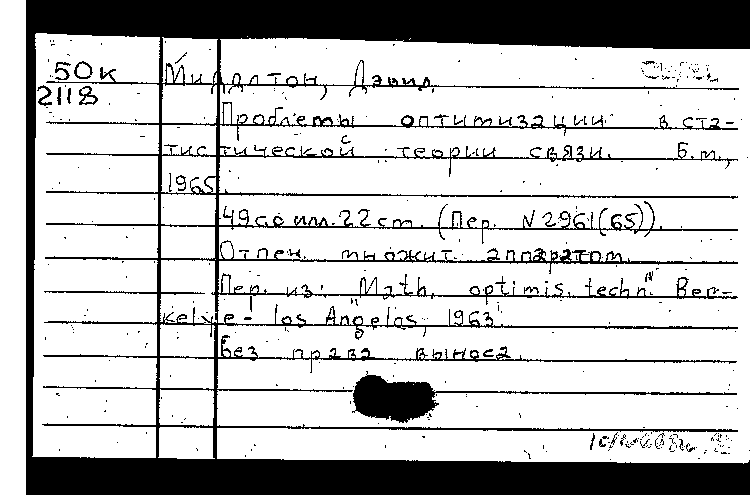 50к
2118
Миддлтон, Дэвид.
Проблемы оптимизации в ста-
тистической теории связи. Б.м.,
1965.
49с. с илл. 22 ст. (Пер. N 2961(65)).
Отпеч. множит. аппаратом.
Пер. из: "Math. optimis. techn." Ber-
kelye - los Angelos, 1963.
Без права выноса.